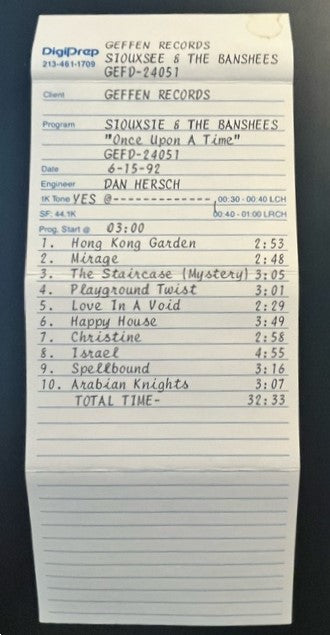 DigiPrep
213-461-1709
GEFFEN RECORDS
SIOUXSEE & THE BANSHEES
GEFD-24051
Client GEFFEN RECORDS
Program SIOUXSIE & THE BANSHEES
"Once Upon A Time"
GEFD-24051
Date 6-15-92
Engineer DAN HERSCH
1K Tone YES @-------------- 00:30 - 00:40 LCH
SF: 44.1K 00:40 - 01:00 LRCH
Prog. Start @ 03:00
1. Hong Kong Garden 2:53
2. Mirage 2:48
3. The Staircase (Mystery) 3:05
4. Playground Twist 3:01
5. Love In A Void 2:29
6. Happy House 3:49
7. Christine 2:58
8. Israel 4:55
9. Spellbound 3:16
10. Arabian Knights 3:07
TOTAL TIME- 32:33